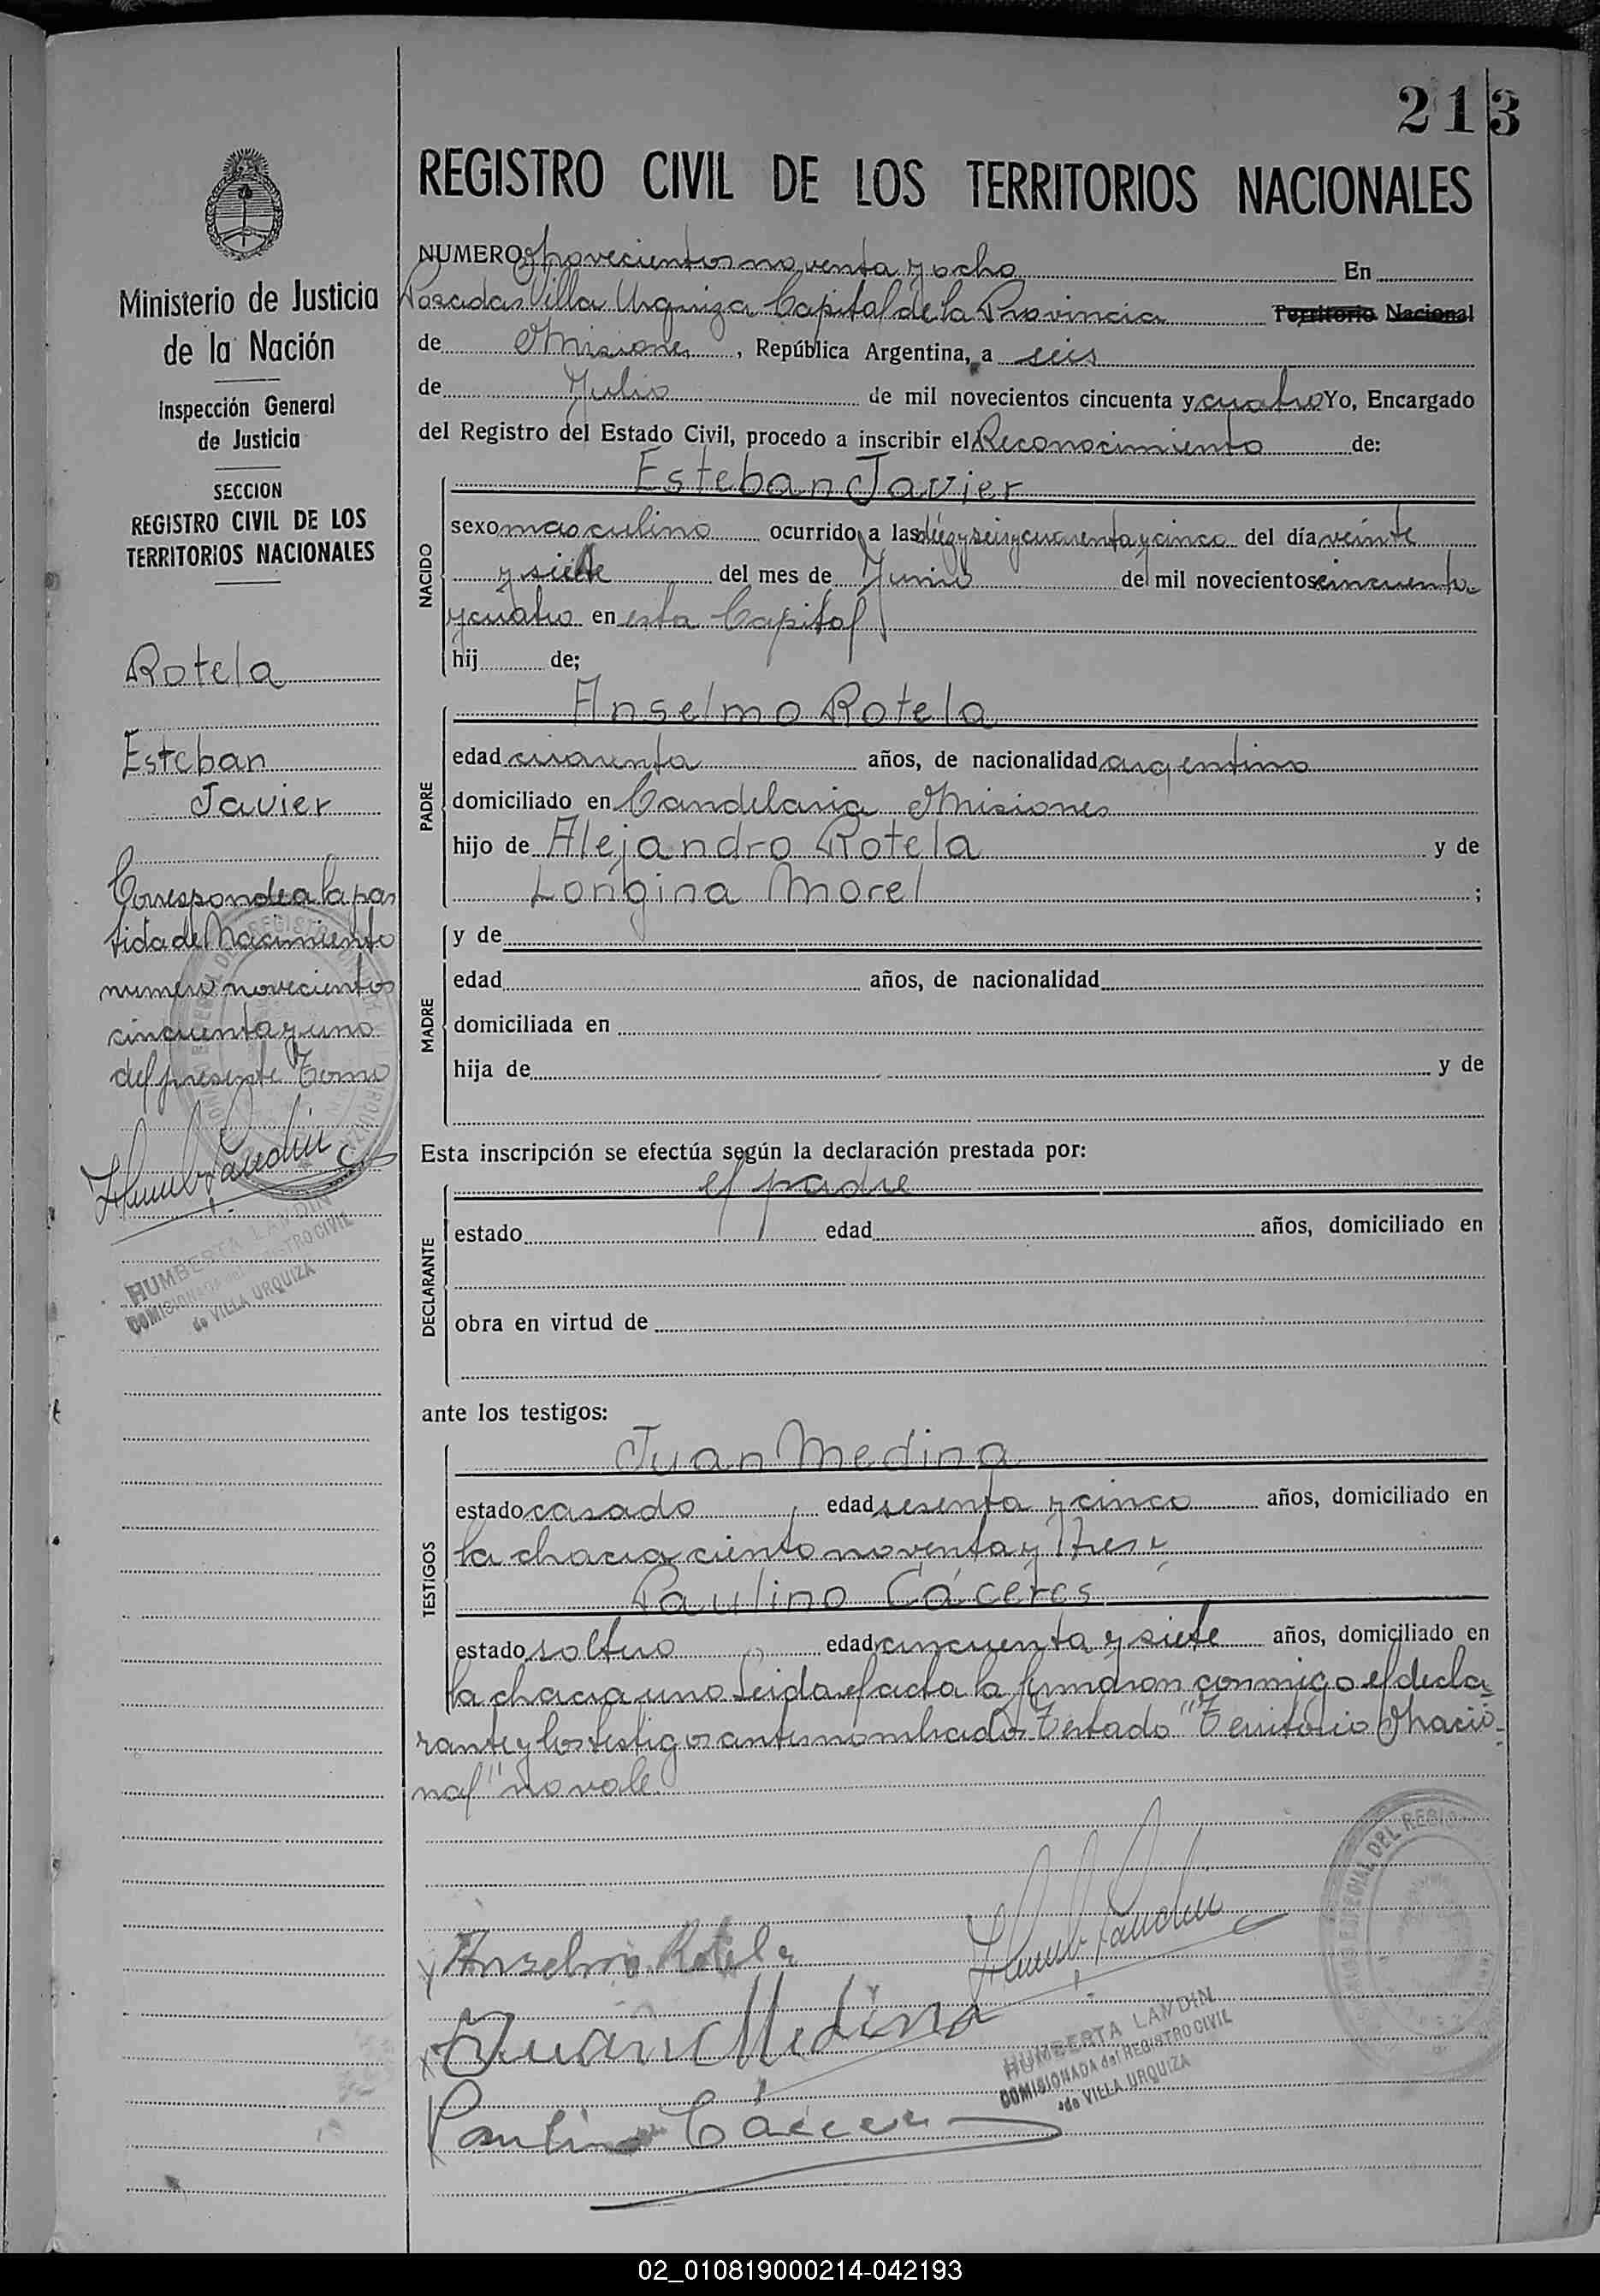 213
REGISTRO CIVIL DE LOS TERRITORIOS NACIONALES
Ministerio de Justicia
de la Nación
Inspección General
de Justicia
SECCION
REGISTRO CIVIL DE LOS
TERRITORIOS NACIONALES
Rotela
Esteban
Javier
Corresponde a la par
tida de Nacimiento
numero novecientos
cincuenta y uno
del presente Tomo
HUMBERTA LANDIN
COMISIONADA del REGISTRO CIVIL
de VILLA URQUIZA
NUMERO Novecientos noventa y ocho En
Posadas Villa Urquiza Capital de la Provincia Territorio Nacional
de Misiones, República Argentina, a seis
de Julio de mil novecientos cincuenta y cuatro Yo, Encargado
del Registro del Estado Civil, procedo a inscribir el Reconocimiento de:
NACIDO
Esteban Javier
sexo masculino ocurrido a las diez y seis y cuarenta y cinco del día veinte
y siete del mes de Junio de mil novecientos cincuenta
y cuatro en esta Capital
hij de;
PADRE
Anselmo Rotela
edad cuarenta años, de nacionalidad argentino
domiciliado en Candelaria Misiones
hijo de Alejandro Rotela y de
Longina Morel ;
MADRE
y de
edad años, de nacionalidad
domiciliada en
hija de y de
Esta inscripción se efectúa según la declaración prestada por:
DECLARANTE
el padre
estado edad años, domiciliado en
obra en virtud de
ante los testigos:
TESTIGOS
Juan Medina
estado casado edad sesenta y cinco años, domiciliado en
la chacra ciento noventa y tres y
Paulino Cáceres
estado soltero edad cincuenta y siete años, domiciliado en
la chacra uno Leida el acta la firmaron conmigo el decla
rante y los testigos antes nombrados Testado "Territorio Nacio-
nal" no vale
Anselmo Rotela
Juan Medina
Paulino Cáceres
HUMBERTA LANDIN
COMISIONADA del REGISTRO CIVIL
de VILLA URQUIZA
02_010819000214-042193